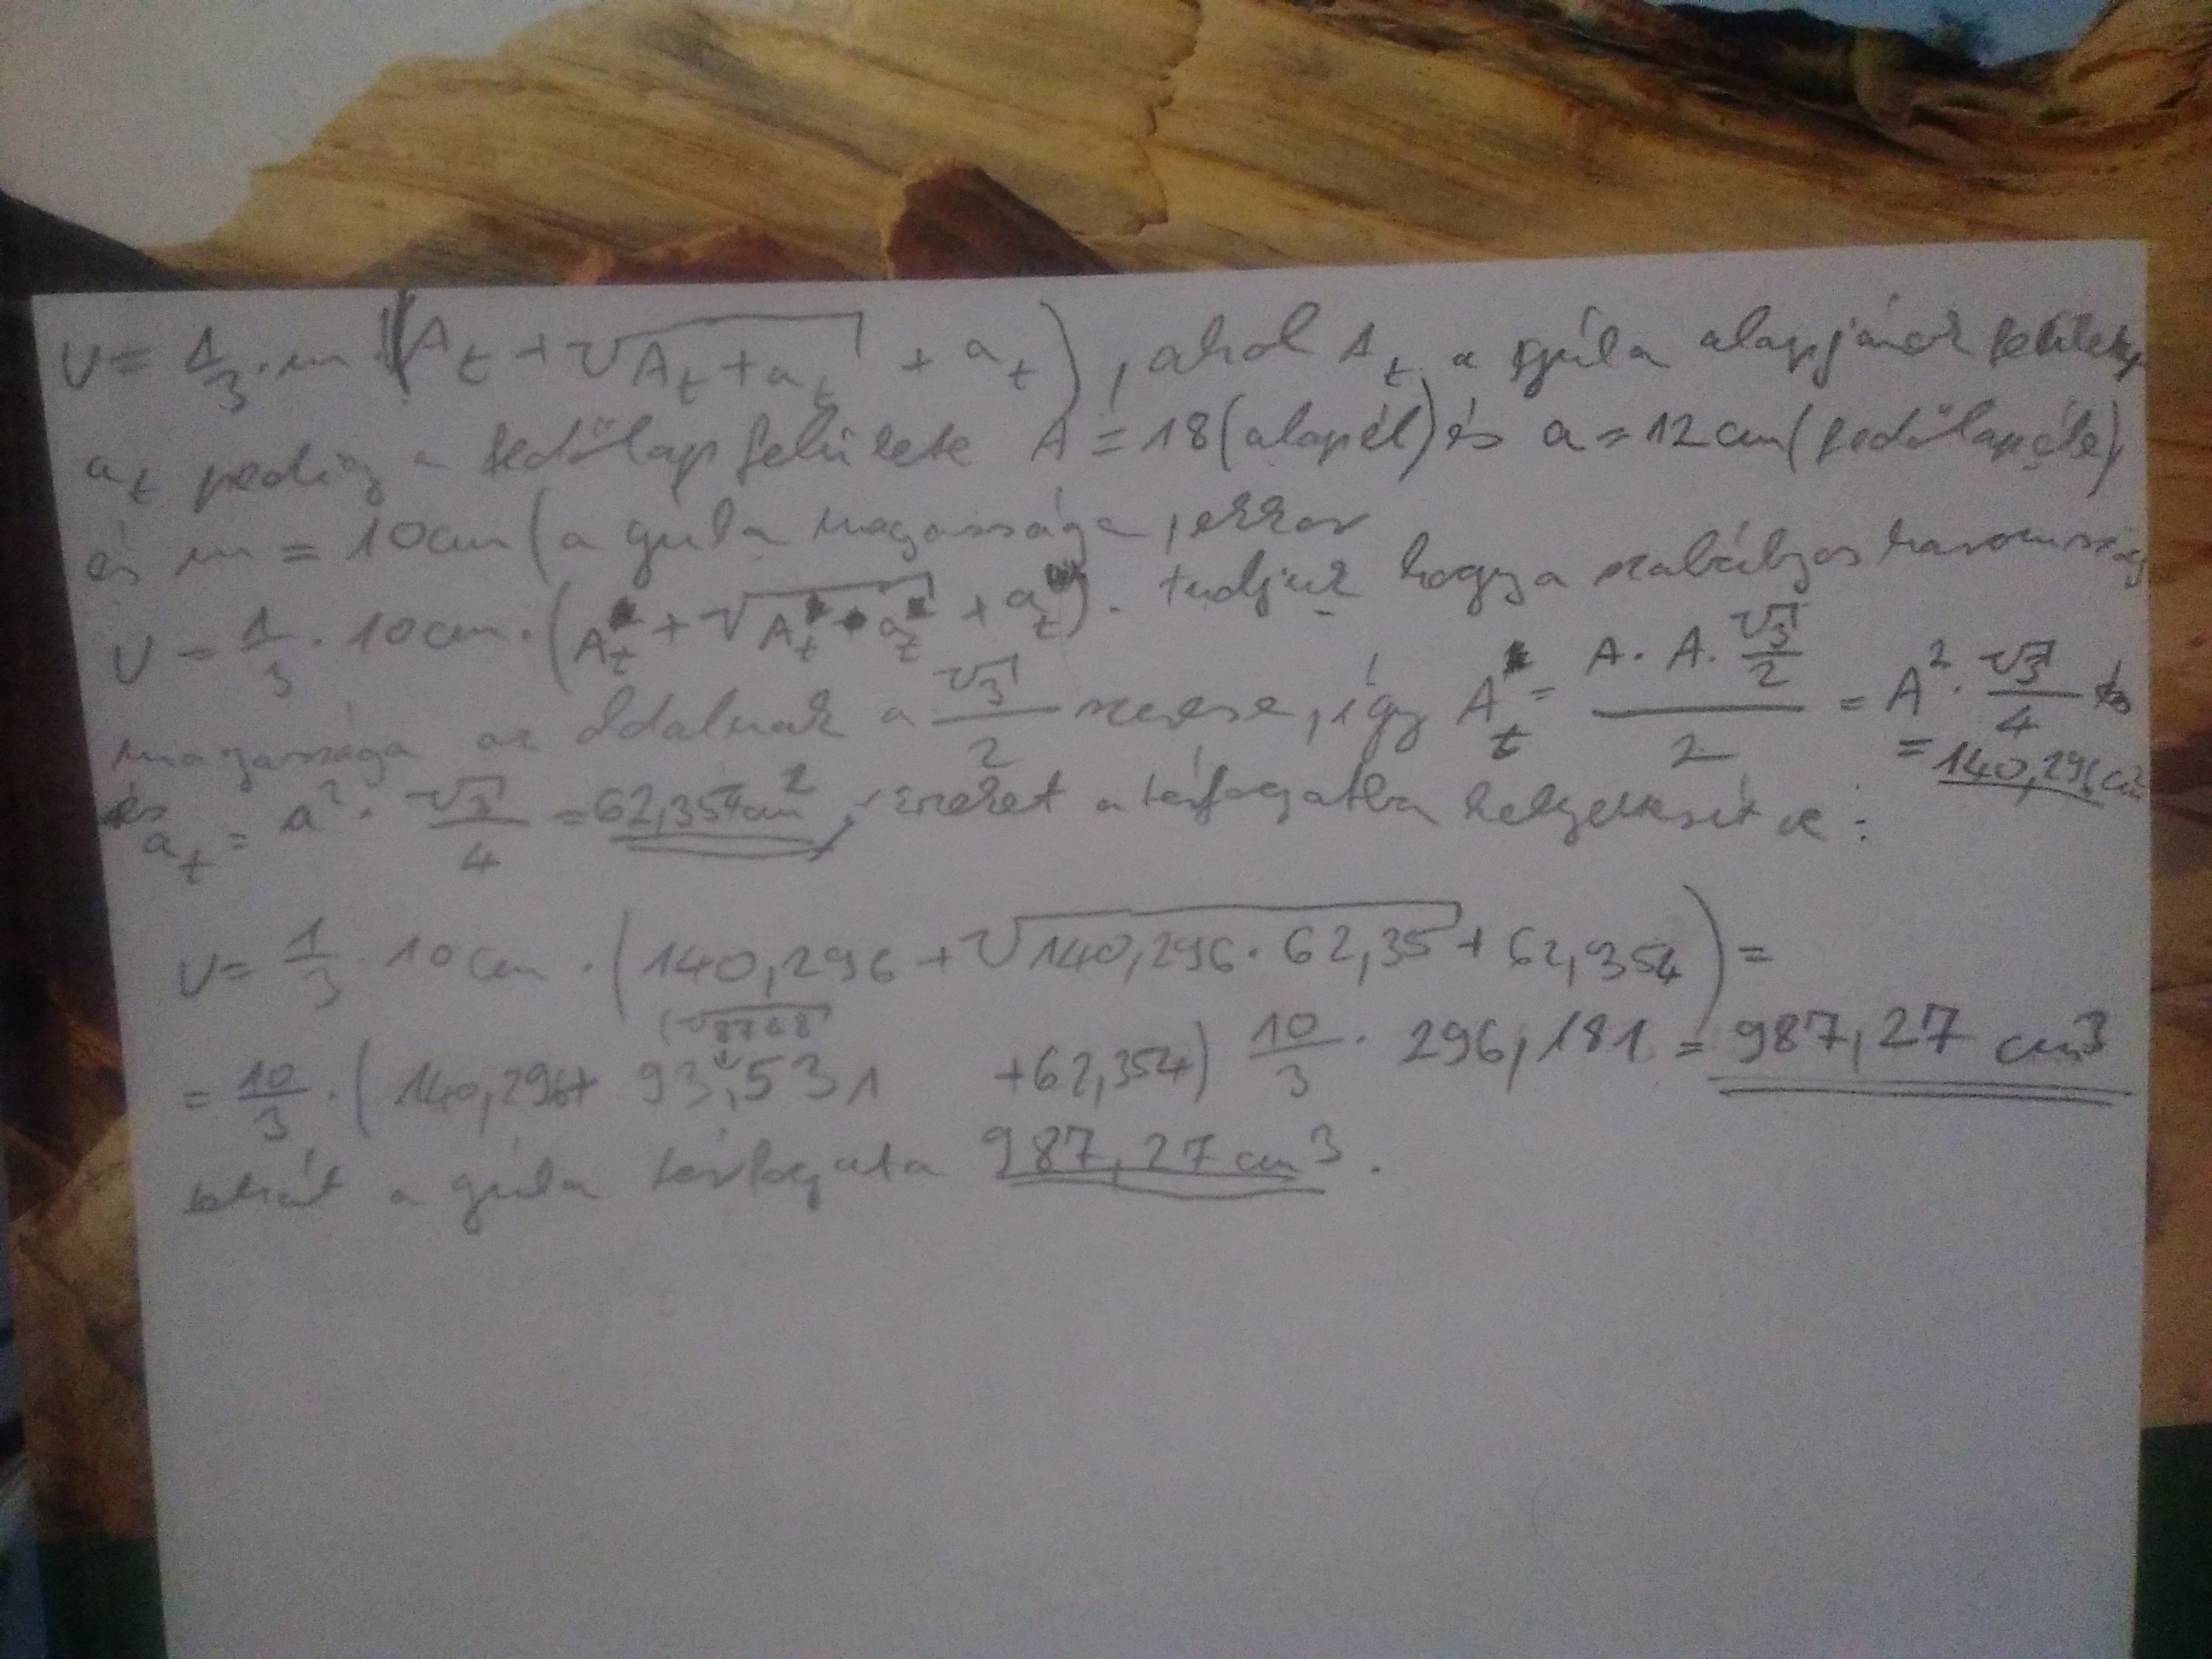 V = 1/3 · m · (A_t + √(A_t + a_t) + a_t), ahol A_t a gúla alapjának felülete,
a_t pedig a fedőlap felülete A = 18 (alapél) és a = 12 cm (fedőlap éle)
és m = 10 cm (a gúla magassága, ekkor
V = 1/3 · 10 cm · (A_t + √(A_t · a_t) + a_t). tudjuk hogy a szabályos háromszög
magassága az oldalnak a √3/2 szerese, így A_t = (A · A · √3/2)/2 = A² · √3/4 = 140,296 cm²
és a_t = a² · √3/4 = 62,354 cm², ezeket a térfogatba helyettesítve:
V = 1/3 · 10 cm · (140,296 + √(140,296 · 62,35) + 62,354) =
(√8748)
= 10/3 · (140,296 + 93,531 + 62,354) 10/3 · 296,181 = 987,27 cm³
tehát a gúla térfogata 987,27 cm³.